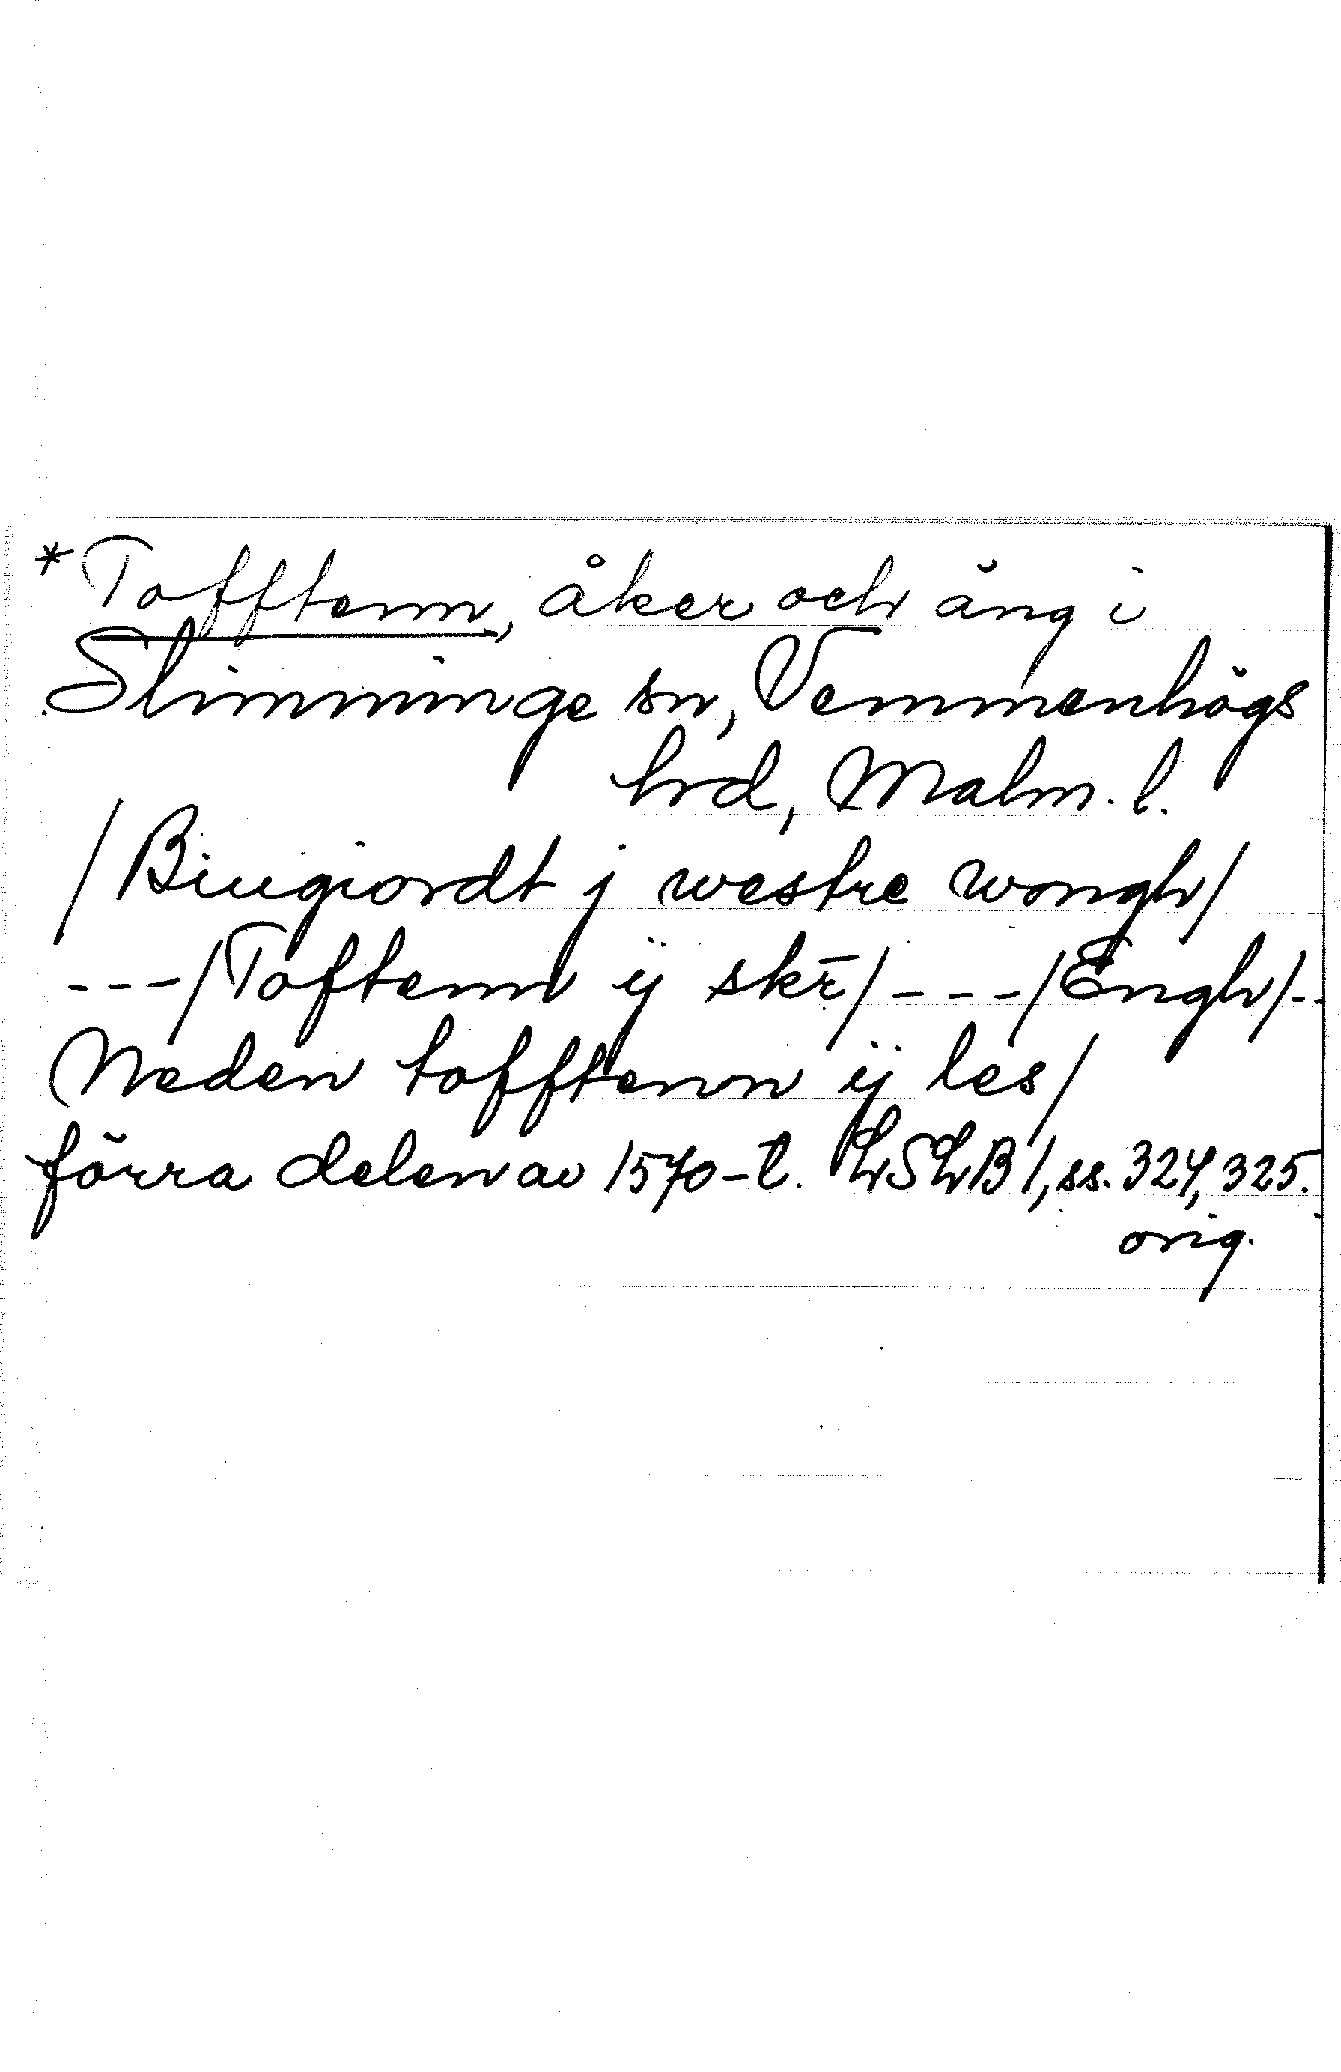 *Tofftenn, åker och äng i
Slimminge sn, Vemmenhögs
hrd, Malm. l.
/Biugiordt j westre wongh/
---/Toftenn ÿ skr̄/---/Engh/--
Neden tofftenn ÿ les/
förra delen av 1570-t. LSLB I, ss. 324, 325.
orig.